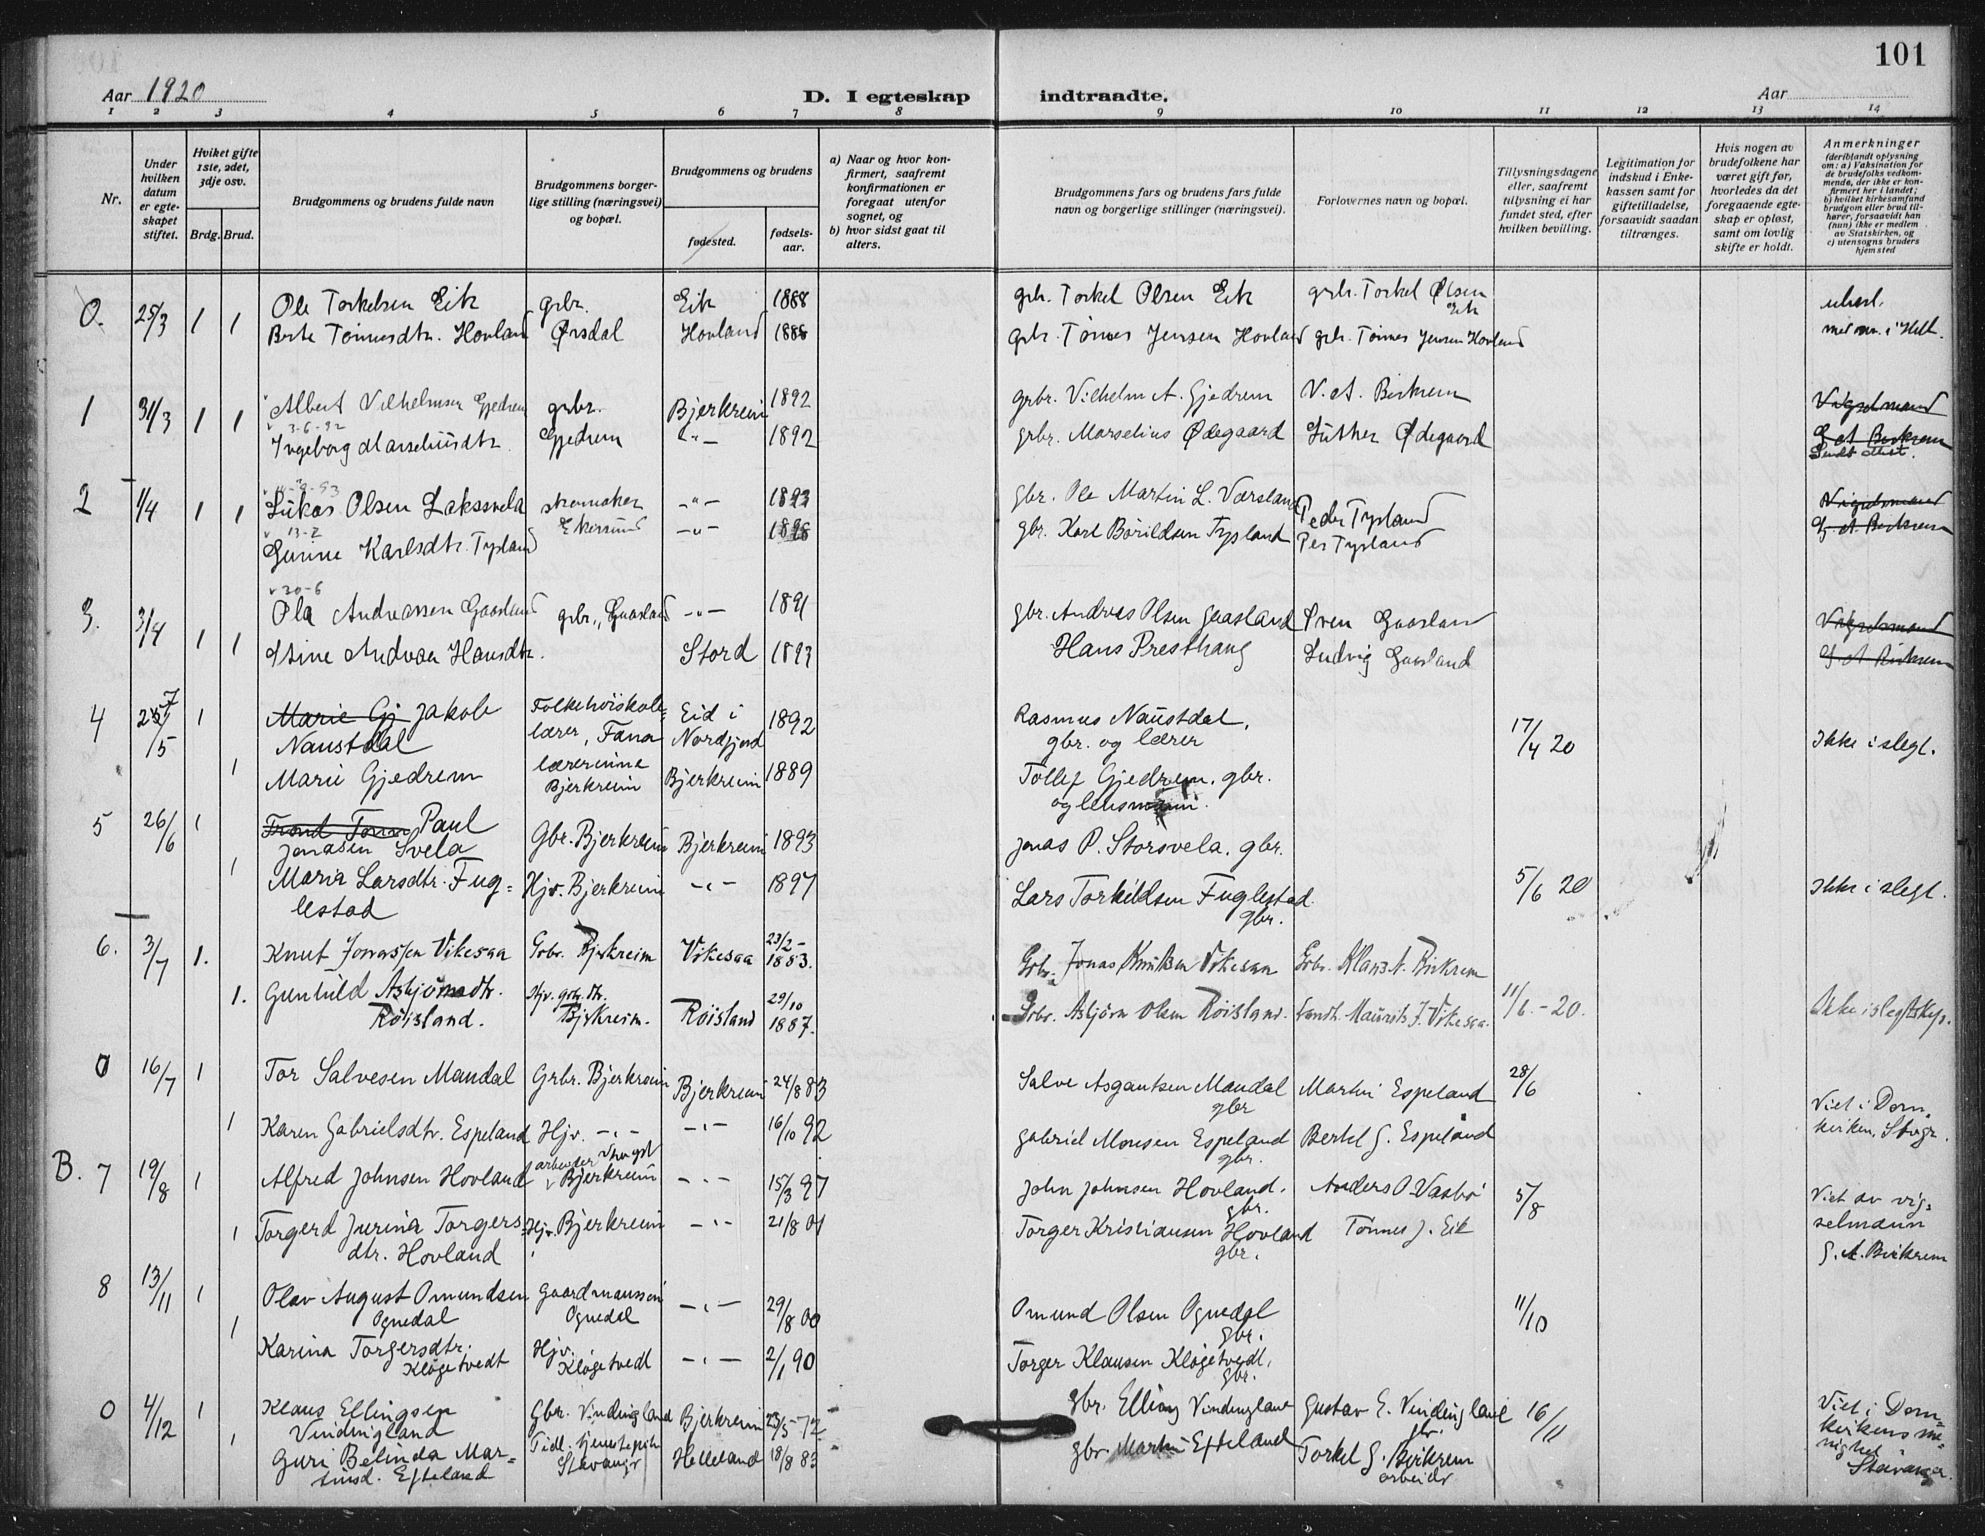 101
Aar 1920
D. I egteskap indtraadte.
Aar
1 2 3 4 5 6 7 8 9 10 11 12 13 14
Nr.
Under hvilken datum er egteskapet stiftet.
Hviket gifte 1ste, 2det, 3dje osv.
Brdg. Brud.
Brudgommens og brudens fulde navn
Brudgommens borgerlige stilling (næringsvei) og bopæl.
Brudgommens og brudens
fødested.
fødselsaar.
a) Naar og hvor konfirmert, saafremt konfirmationen er foregaat utenfor sognet, og
b) hvor sidst gaat til alters.
Brudgommens fars og brudens fars fulde navn og borgerlige stillinger (næringsvei).
Forlovernes navn og bopæl.
Tillysningsdagene eller, saafremt tillysning ei har fundet sted, efter hvilken bevilling.
Legitimation for indskud i Enkekassen samt for giftetilladelse, forsaavidt saadan tiltrænges.
Hvis nogen av brudefolkene har været gift før, hvorledes da det foregaaende egteskap er opløst, samt om lovlig skifte er holdt.
Anmerkninger (deriblandt oplysning om: a) Vaksination for de brudefolks vedkommende, der ikke er konfirmert her i landet; b) hvilket kirkesamfund brudgom eller brud tilhører, forsaavidt han (hun) ikke er medlem av Statskirken, og c) utensogns bruders hjemsted
0. 25/3 1 Ole Torkelsen Eik grbr. Eik 1888 grb. Torkel Olsen Eik grb. Torkel Olsen Eik
1 Berte Tönnesdtr. Hovland Ørsdal Hovland 1886 grb. Tönnes Jensen Hovland grb. Tönnes Jensen Hovland
1 31/3 1 Albert Vilhelmsen Gjedrem grbr. Bjerkreim 1892 grbr. Vilhelm A. Gjedrem V. A. Birkrem Vigselmand
3-6-92
1 Ingeborg Marseliusdtr. Gjedrem -"- 1892 grbr. Marselius Ødegaard Luther Ødegaard G A Birkrem
Sendt attest.
2 1/4 1 Lukas Olsen Lakssvela skomaker -"- 1893 gbr. Ole Martin L. Værsland Peder Tysland Vigselsmand
13-2
1 Gunne Karlsdtr. Tysland Ekersund -"- gbr. Karl Bårildsen Tysland Per Tysland G. A. Birkrem
20-6
3. 3/4 1 Ola Andreassen Gaasland grbr. Gaasland -"- 1891 gbr. Andreas Olsen Gaasland Sven Gaasland Vigselsmand
1 Stine Andrea Hansdtr. Stord 1893 Hans Presthaug Ludvig Gaasland G A Birkrem
4 1 Marie Gj Jakob Naustdal Folkehöiskolelærer, Fana Eid i Nordfjord 1892 Rasmus Naustdal, gbr. og lærer 17/4 20 Ikke i slegt.
1 Marie Gjedrem lærerinne Bjerkreim Bjerkreim 1889 Tollef Gjedrem, gbr. og lensmann.
5 26/6 1 Paul Jonasen Svela Gbr. Bjerkreim Bjerkreim 1893 Jonas P. Storsvela, gbr.
1 Maria Larsdtr. Fuglestad Hjv. Bjerkreim -"- 1897 Lars Torkildsen Fuglestad gbr. 5/6 20 Ikke i slegt.
6. 3/7 1. Knut Jonassen Vikesaa Grbr. Bjerkreim Vikesaa 23/2-1883. Grbr. Jonas Knutsen Vikesaa Grbr. Klaus A. Birkrem
1. Gunhild Asbjörnsdtr. Röisland. Hjv. grbr. dtr. Bjerkreim. Röisland 29/10 1887. Grbr. Asbjörn Olsen Röisland. Landh. Maurits J. Vikesaa. 11/6.-20. Ikke i slegtskap.
0 16/7 1 Tor Salvesen Mandal Grbr. Bjerkreim Bjerkreim 24/8 83 Salve Asgautsen Mandal gbr Martin Espeland 28/6
1 Karen Gabrielsdtr. Espeland Hjv. -"- -"- 16/10 92 Gabriel Monsen Espeland gbr. Bertel G. Espeland Viet i Domkirken, Stvgr.
B. 7 19/8 1 Alfred Johnsen Hovland arbeider Bjerkreim -"- 15/3 97 John Johnsen Hovland. gbr. Anders O. Vasbö 5/8 Viet av vigselmann
1 Torgerd Jurina Torgersdtr. Hovland Hjv. Bjerkreim -"- 21/8 01 Torger Kristiansen Hovland gbr. Tönnes J. Eik G. A. Birkrem
8 13/11 1 Olav August Omundsen Ognedal Gaardmannssön Ognedal -"- 29/8 00 Omund Olsen Ognedal gbr. 11/10
1 Karina Torgersdtr. Klögetvedt Hjv. Klögetvedt -"- 2/1 90 Torger Klausen Klögetvedt, gbr.
0 4/12 1 Klaus Ellingsen Vindingland Gbr. Vindingland Bjerkreim 23/5-72 gbr. Elling Vindingland Gustav E. Vindingland gbr. 16/11 Viet i Domkirkens menighet Stavanger.
1 Guri Belinda Martinsd. Efteland Tidl. tjenestepike Stavanger Helleland 18/8 83 gbr. Martin Efteland Torkel G. Birkrem arbeider